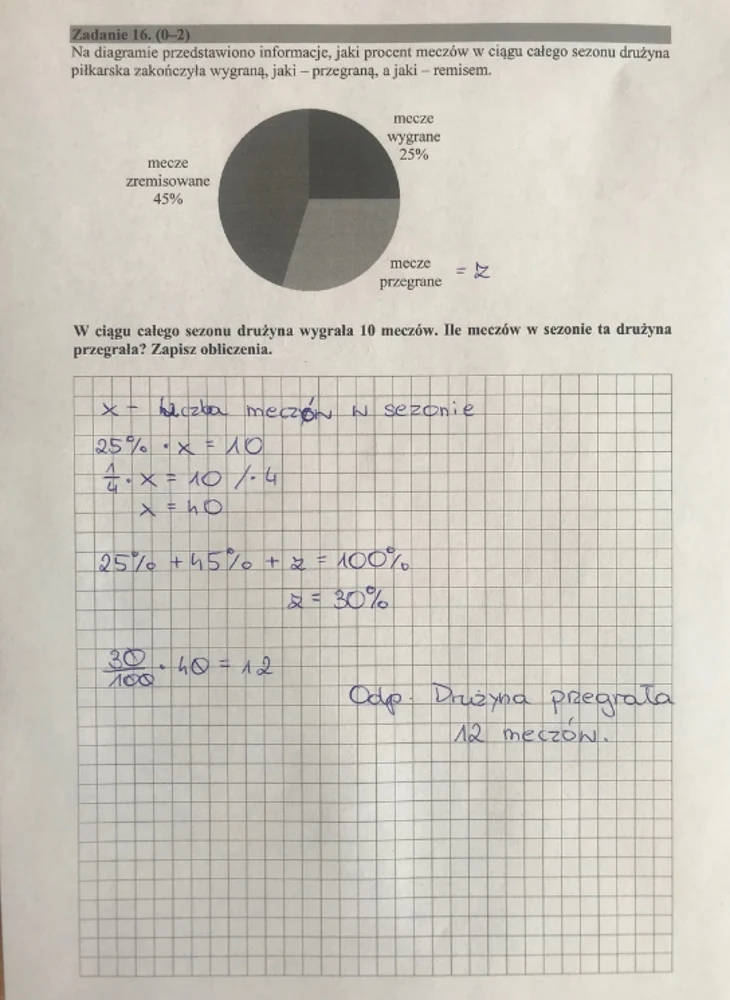 Zadanie 16. (0–2)
Na diagramie przedstawiono informacje, jaki procent meczów w ciągu całego sezonu drużyna
piłkarska zakończyła wygraną, jaki – przegraną, a jaki – remisem.
mecze
wygrane
25%
mecze
zremisowane
45%
mecze
przegrane = z
W ciągu całego sezonu drużyna wygrała 10 meczów. Ile meczów w sezonie ta drużyna
przegrała? Zapisz obliczenia.
x - liczba meczów w sezonie
25% · x = 10
1/4 · x = 10 /· 4
x = 40
25% + 45% + z = 100%
z = 30%
30/100 · 40 = 12
Odp. Drużyna przegrała
12 meczów.